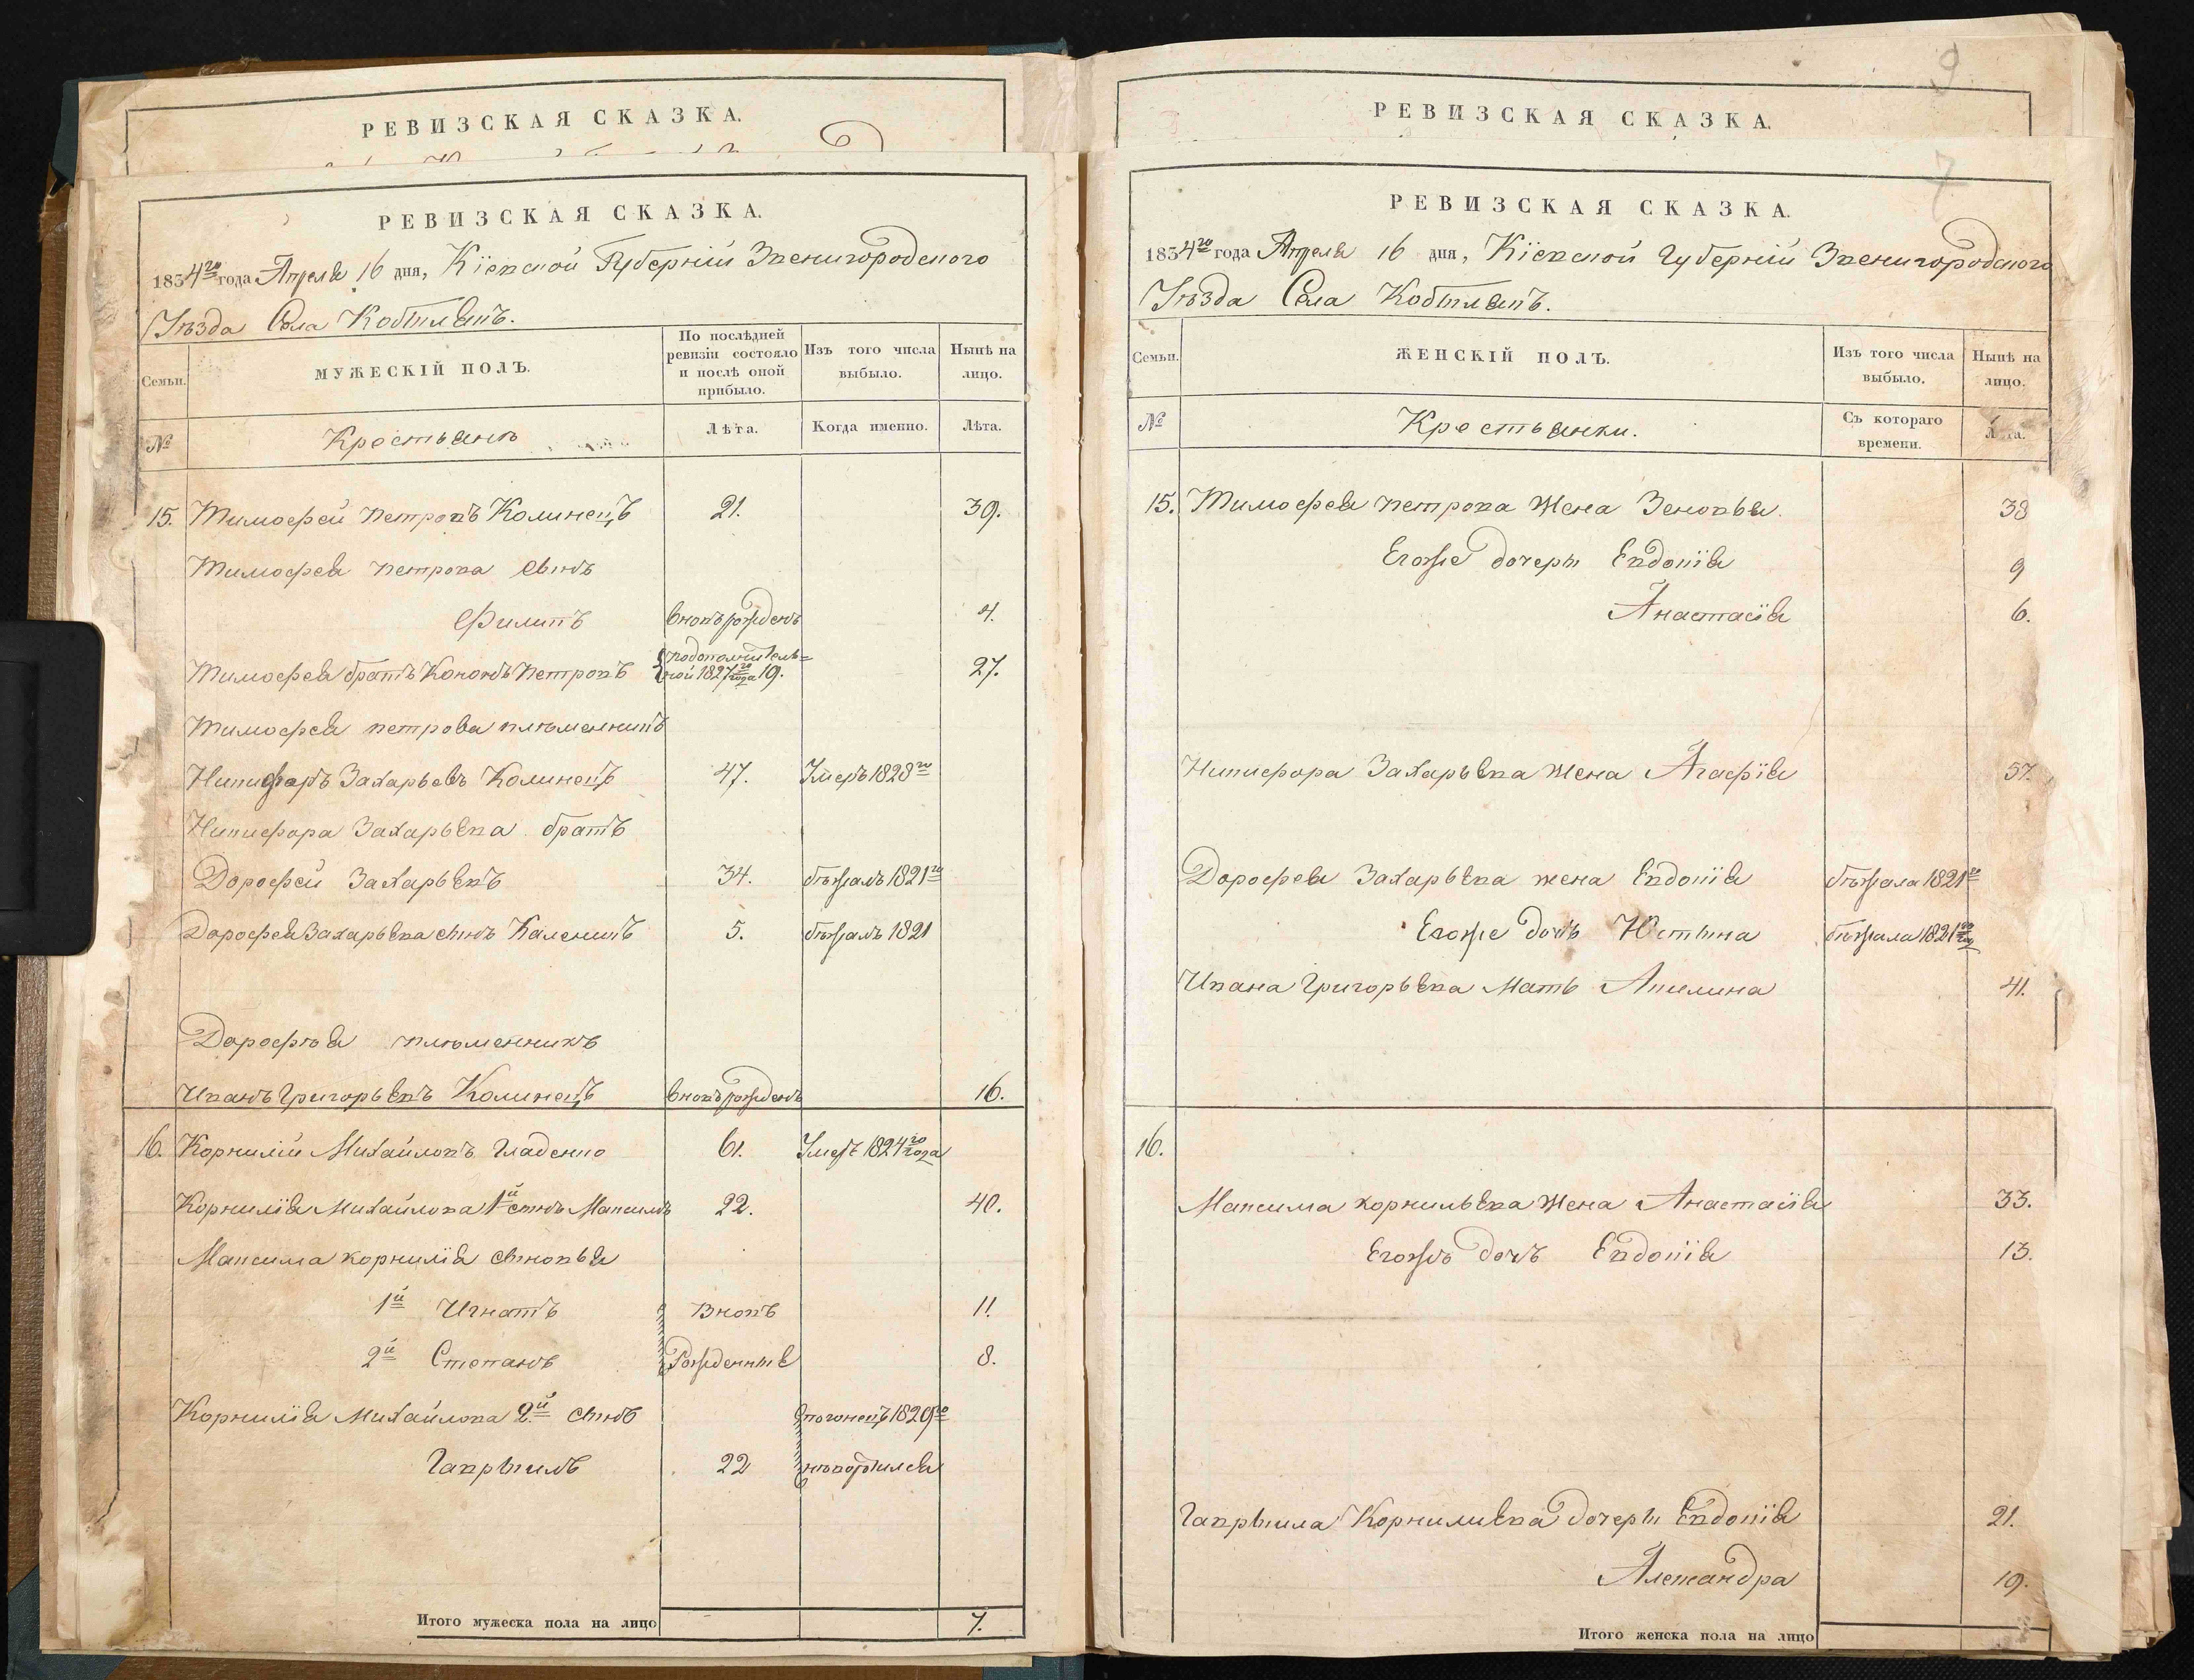 РЕВИЗСКАЯ СКАЗКА.
РЕВИЗСКАЯ СКАЗКА.
1834го года Апреля 16 дня, Кіевской Губерніи Звенигородского
Уѣзда Села
МУЖЕСКІЙ ПОЛЪ.
По послѣдней ревизіи состояло и послѣ оной прибыло.
Изъ того числа выбыло.
Нынѣ на лицо.
Семьи.
№
Крестьянъ
Лѣта.
Когда именно.
Лѣта.
15. Тимофей Петровъ Колинецъ 21. 39.
Тимофея Петрова сынъ
Филипъ вновьрожденъ 4.
Тимофея братъ Кононъ Петровъ подополнитель=ной 1827го года 19. 27.
Тимофея Петрова племенникъ
Никифоръ Захарьевъ Колинецъ 47. Умеръ 1828го
Никифора Захарьева братъ
Дорофей Захарьевъ 34. бѣжалъ 1821го
Дорофея Захарьева сынъ Каленикъ 5. бѣжалъ 1821
Дорофѣя племенникъ
Иванъ Григорьевъ Колинецъ вновьрожденъ 16.
16. Корнилій Михайловъ Гладенко 61. Умеръ 1824го года
Корнилія Михайлова 1й сынъ Максимъ 22. 40.
Максима корнилія сыновья
1й Игнатъ Вновъ 11.
2й Степанъ Рожденные 8.
Корнилія Михайлова 2й сынъ 1829го
Гаврыилъ 22
Итого мужеска пола на лицо 7.
9
РЕВИЗСКАЯ СКАЗКА.
7
РЕВИЗСКАЯ СКАЗКА.
1834го года Апреля 16 дня, Кіевской Губерніи Звенигородского
Уѣзда Села
Семьи.
ЖЕНСКІЙ ПОЛЪ.
Изъ того числа выбыло.
Нынѣ на лицо.
№
Крестьянки.
Съ котораго времени.
Лѣта.
15. Тимофея Петрова жена Зеновья 38
Егоже дочеры Евдокія 9
Анастасія 6.
Никифора Захарьева жена Агафія 57.
Дорофея Захарьева жена Евдокія бѣжала 1821го
Егоже дочъ Юстына бѣжала 1821го
Ивана Григорьева мать Акилина 41.
16.
Максима корнильева жена Анастасія 33.
Егожъ дочъ Евдокія 13.
Гаврыила Корнилиева дочеры Евдокія 21.
Александра 19.
Итого женска пола на лицо